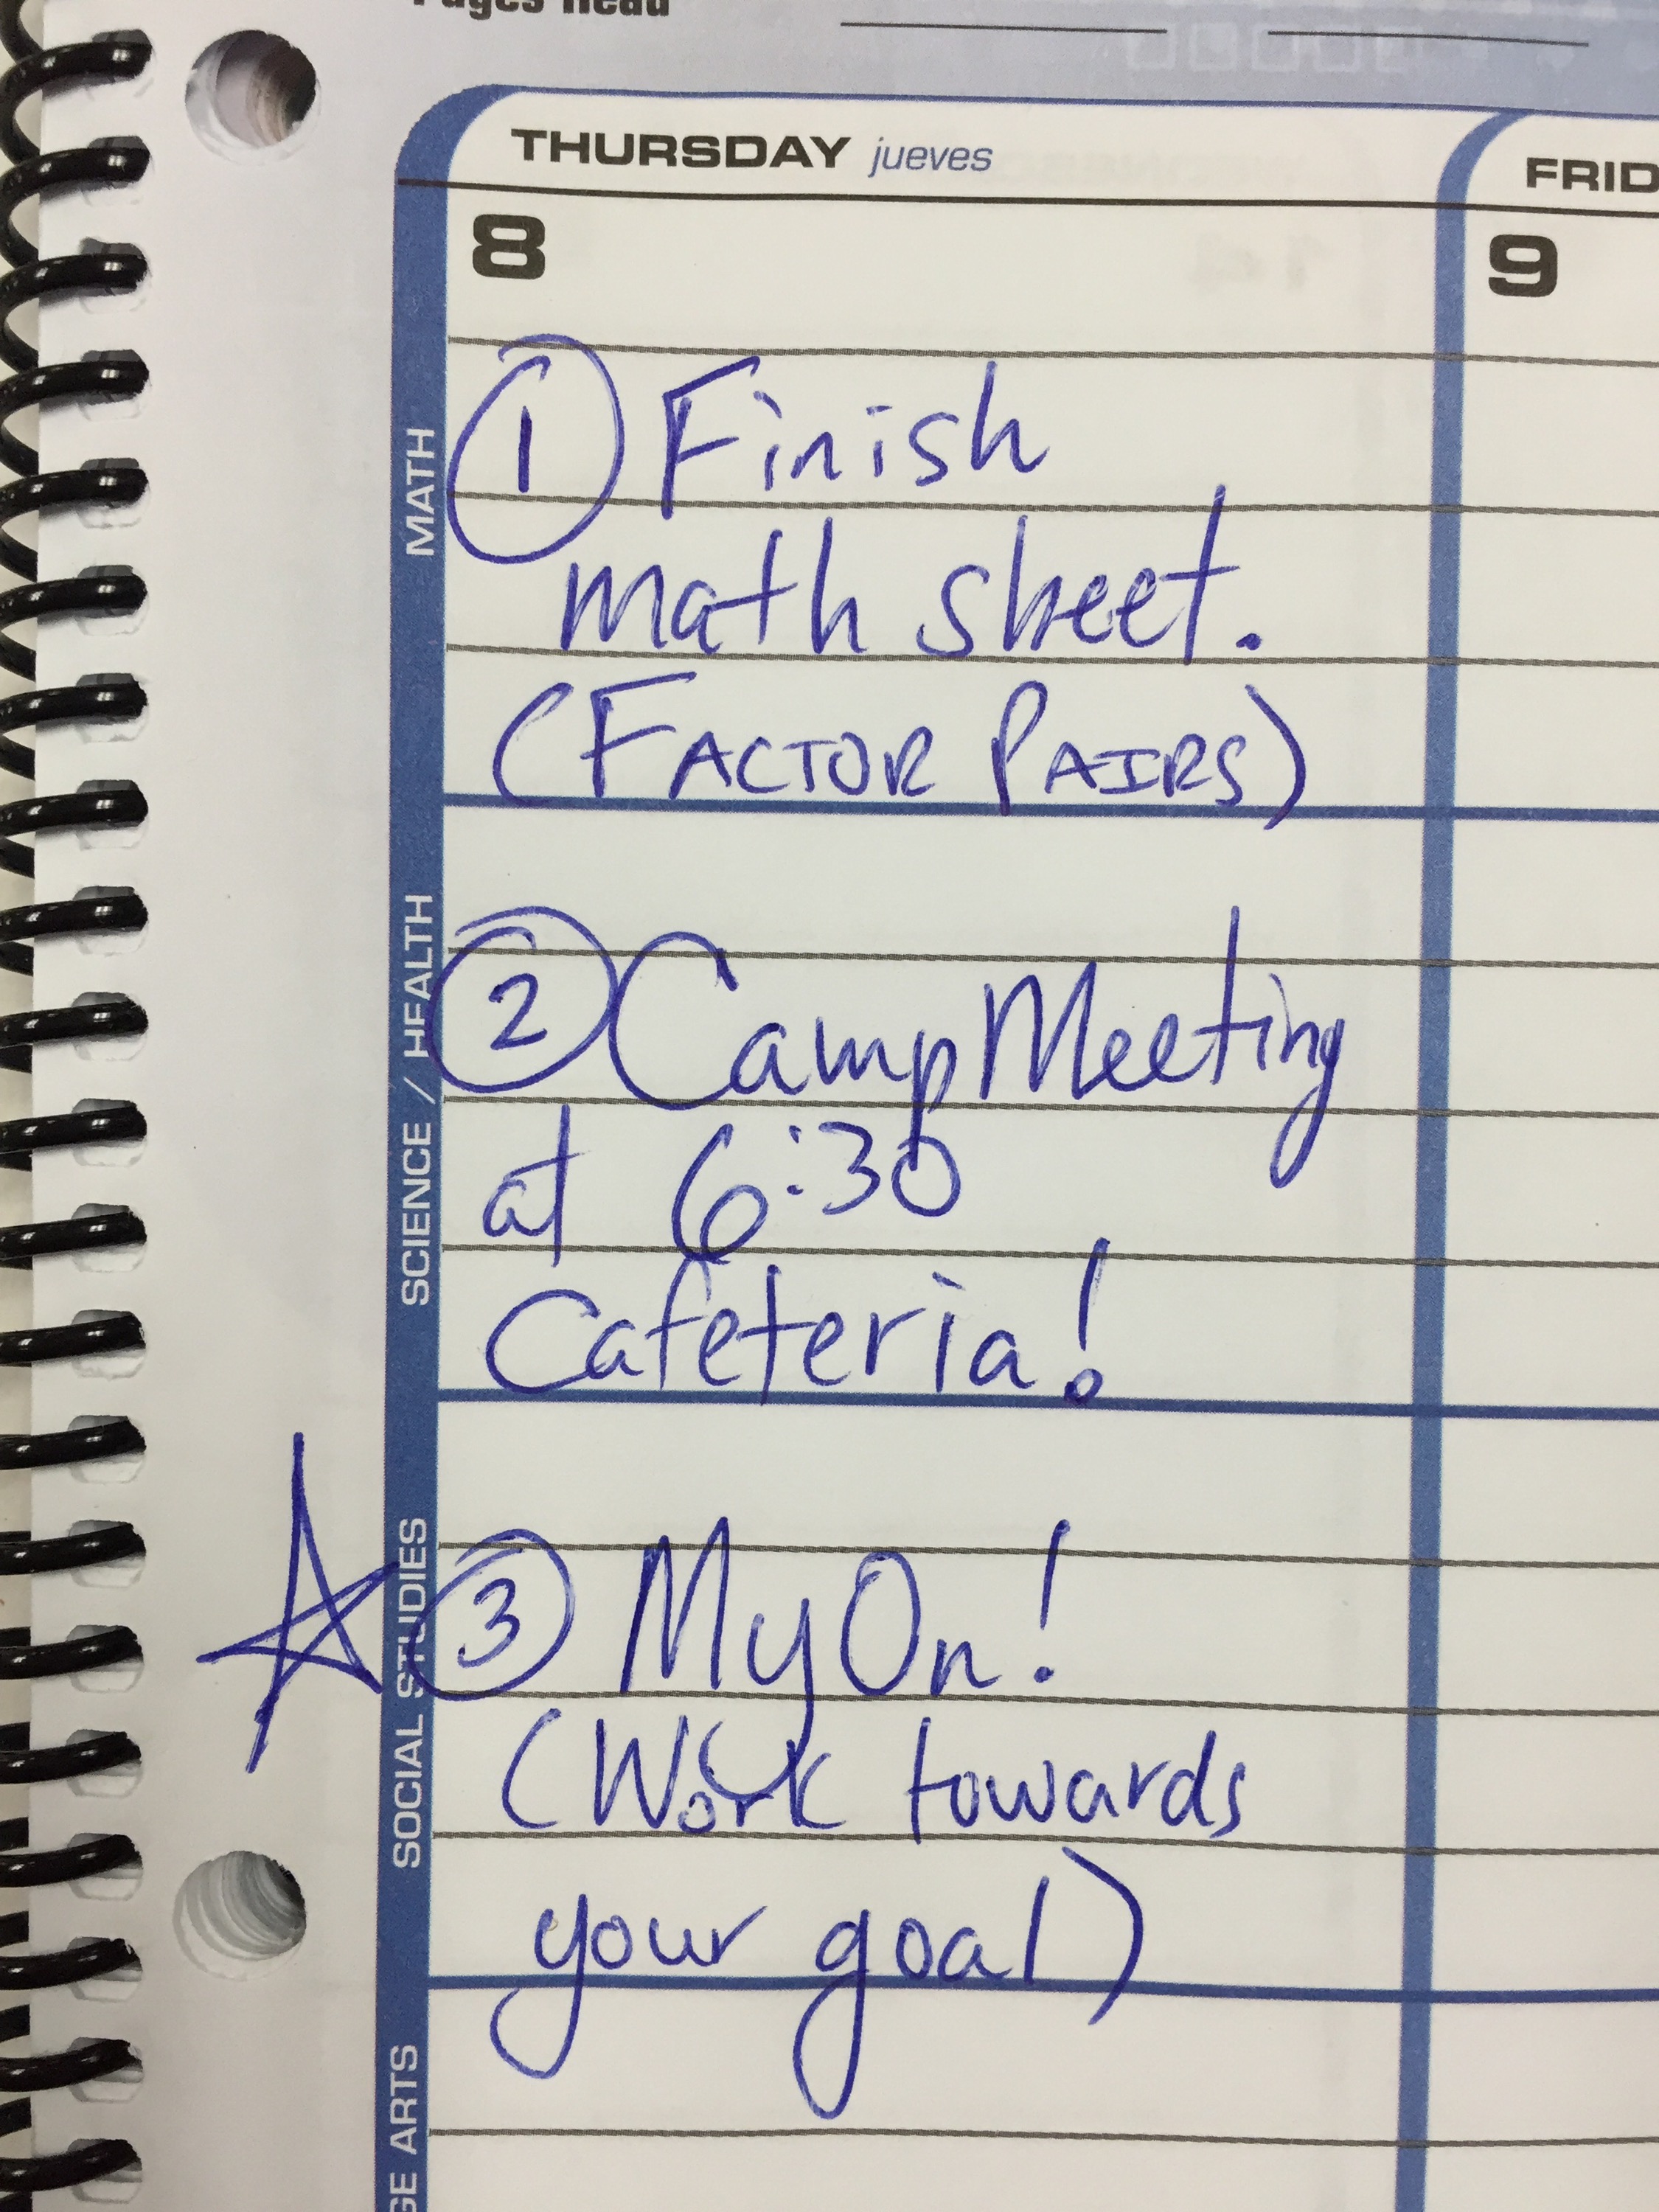 Pages Read
THURSDAY jueves
FRID
8
9
MATH
① Finish
math sheet.
(FACTOR PAIRS)
SCIENCE / HEALTH
② Camp Meeting
at 6:30
Cafeteria!
SOCIAL STUDIES
③ My On!
(Work towards
your goal)
GE ARTS